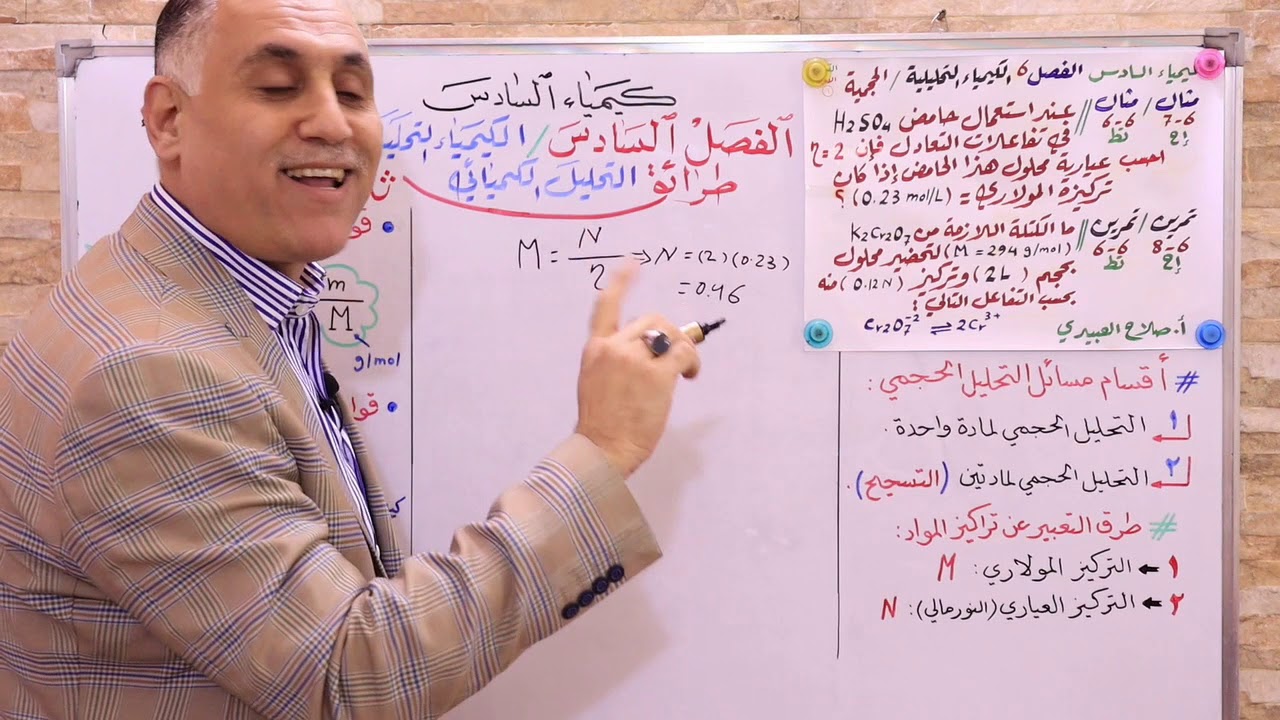 كيمياء السادس
الفصل السادس / الكيمياء
طرائق التحليل الكيميائي
m
M
g/mol
M = N / η ⇒ N = (2)(0.23)
= 0.46
كيمياء السادس الفصل 6 الكيمياء التحليلية / الحجمية
مثال / مثال // عند استعمال حامض H2SO4
6-7 6-6
إح تط
في تفاعلات التعادل فإن η = 2
احسب عيارية محلول هذا الحامض إذا كان
تركيزة المولاري = (0.23 mol/L) ؟
تمرين / تمرين // ما الكتلة اللازمة من K2Cr2O7
6-8 6-6
إح تط
(M = 294 g/mol) لتحضير محلول
بحجم (2L) وتركيز (0.12N) منه
بحسب التفاعل التالي؛
Cr2O7-2 ⇌ 2Cr3+
أ. صلاح العبيدي
# أقسام مسائل التحليل الحجمي :
١ التحليل الحجمي لمادة واحدة .
٢ التحليل الحجمي لمادتين (التسحيح) .
# طرق التعبير عن تراكيز المواد :
١ ← التركيز المولاري : M
٢ ← التركيز العياري (النورمالي) : N